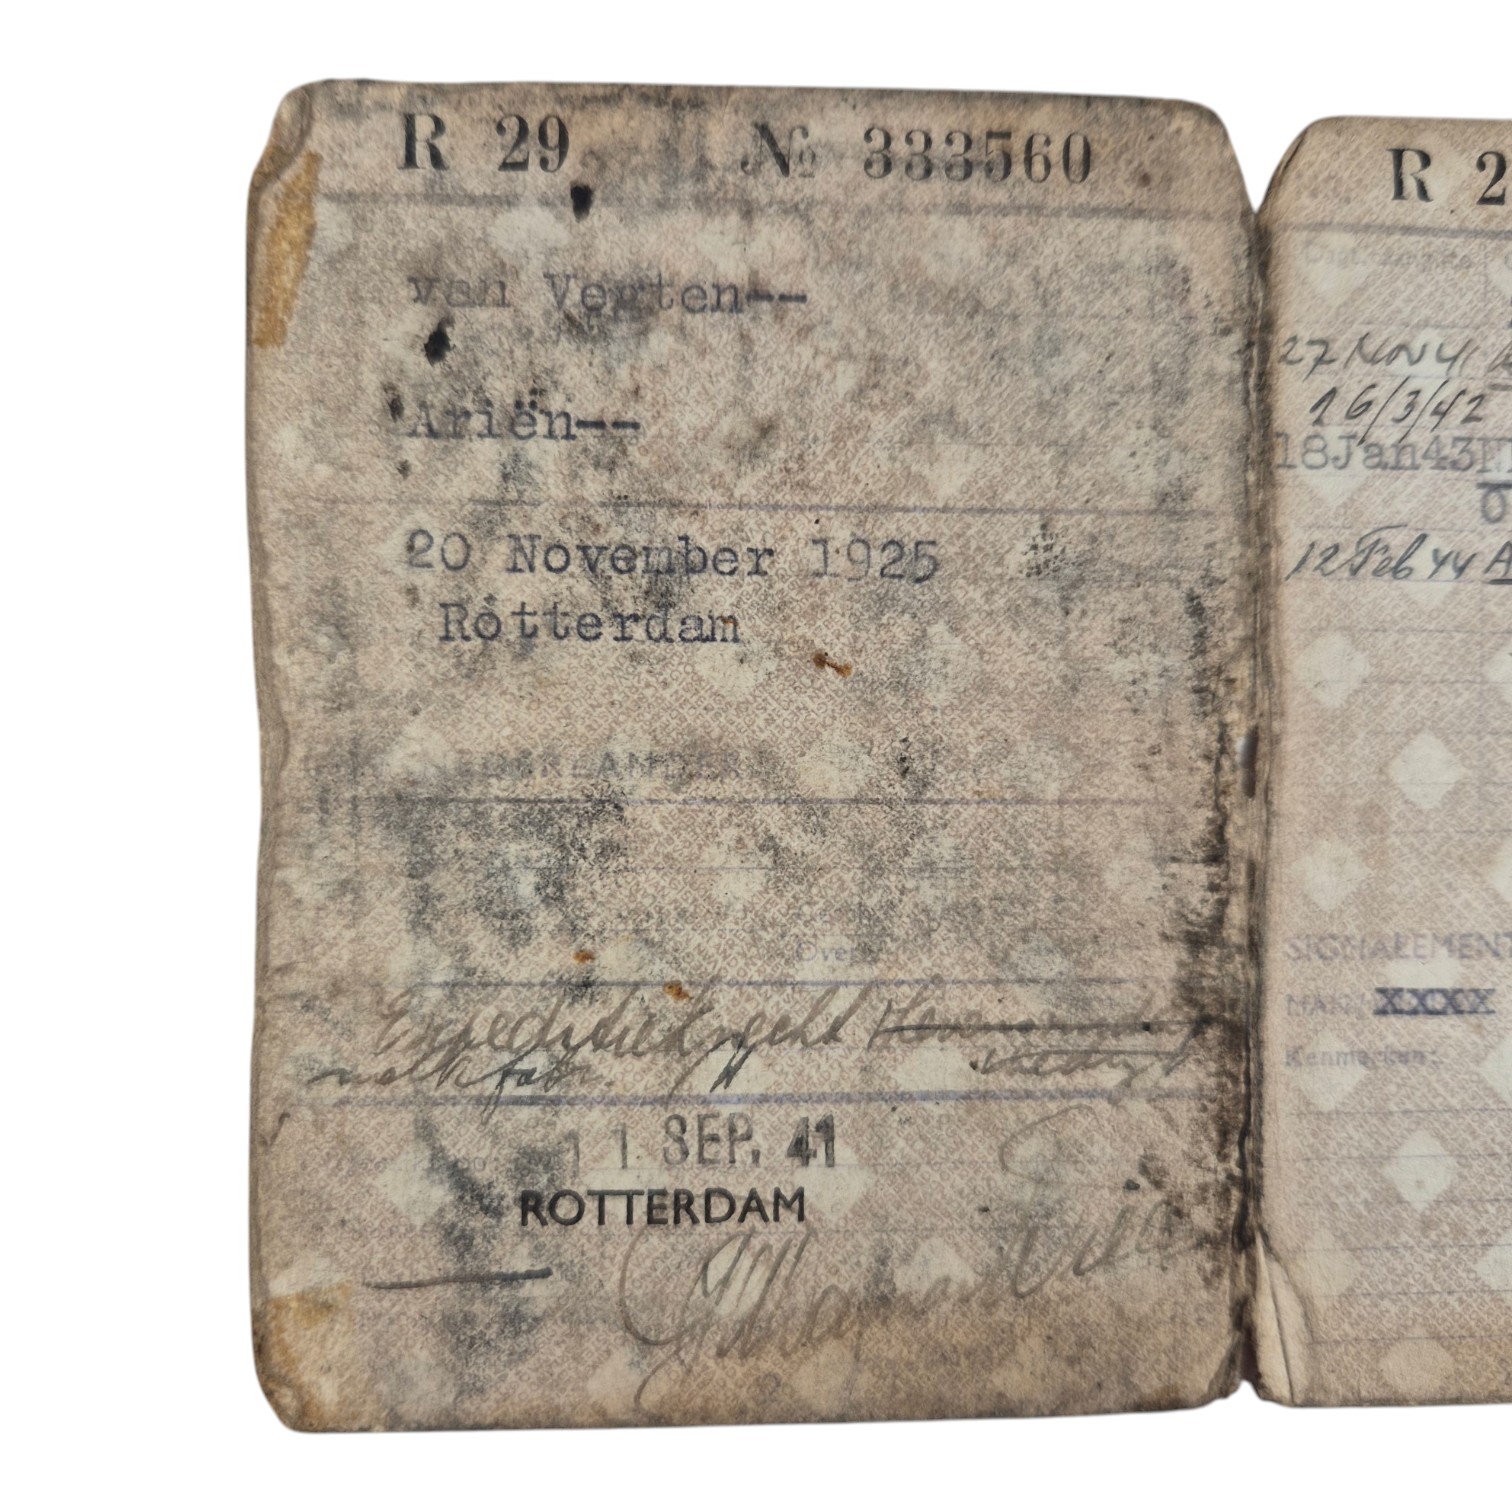 R 29 № 333560
van Vegten--
Ariën--
20 November 1925
Rotterdam
NEDERLANDER
Over
Expeditieknecht
melkfabr.
11 SEP. 41
ROTTERDAM
R 2
27 Nov 41
16/3/42
18Jan43
12 Feb 44 A
SIGNALEMENT
MAN/ XXXX
Kenmerken: